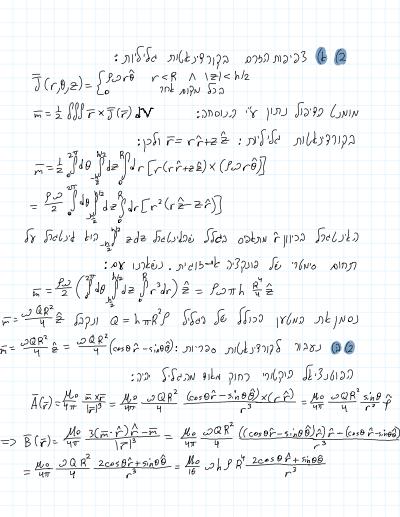 2) א) צפיפות הזרם בקורדינאטות גליליות:
J̅(r,θ,z) = { ρωrθ̂  r<R ∧ |z|<h/2
0  בכל מקום אחר
מומנט הדיפול נתון ע"י הנוסחה: m̅ = ½ ∭ r̅ × J̅(r̅) dV
בקורדינאטות גליליות: r̅ = rr̂ + zẑ ולכן:
m̅ = ½ ∫₀^{2π} dθ ∫_{-h/2}^{h/2} dz ∫₀^R dr [r(rr̂+zẑ) × (ρωrθ̂)]
= ρω/2 ∫₀^{2π} dθ ∫_{-h/2}^{h/2} dz ∫₀^R dr [r²(rẑ - zr̂)]
האינטגרל בכיוון r̂ מתאפס בגלל שהאינטגרל ∫_{-h/2}^{h/2} zdz הוא אינטגרל על
תחום סימטרי של פונקציה אי-זוגית. נשארנו עם:
m̅ = ρω/2 (∫₀^{2π} dθ ∫_{-h/2}^{h/2} dz ∫₀^R r³dr) ẑ = ρωπh R⁴/4 ẑ
נסמן את המטען הכולל של הגליל Q = hπR²ρ ונקבל m̅ = ωQR²/4 ẑ
2) ב) נעבור לקורדינאטות ספריות: m̅ = ωQR²/4 ẑ = ωQR²/4 (cosθr̂ - sinθθ̂)
הפוטנציאל הוקטורי רחוק מאוד מהגליל יהיה:
A̅(r̅) = μ₀/4π m̅×r̅/|r̅|³ = μ₀/4π ωQR²/4 (cosθr̂ - sinθθ̂)×(rr̂)/r³ = μ₀/4π ωQR²/4 sinθ/r² φ̂
=> B̅(r̅) = μ₀/4π 3(m̅·r̂)r̂ - m̅/|r̅|³ = μ₀/4π ωQR²/4 ((cosθr̂ - sinθθ̂)r̂)r̂ - (cosθr̂ - sinθθ̂)/r³
= μ₀/4π ωQR²/4 2cosθr̂ + sinθθ̂/r³ = μ₀/16 ωhρR⁴ 2cosθr̂ + sinθθ̂/r³